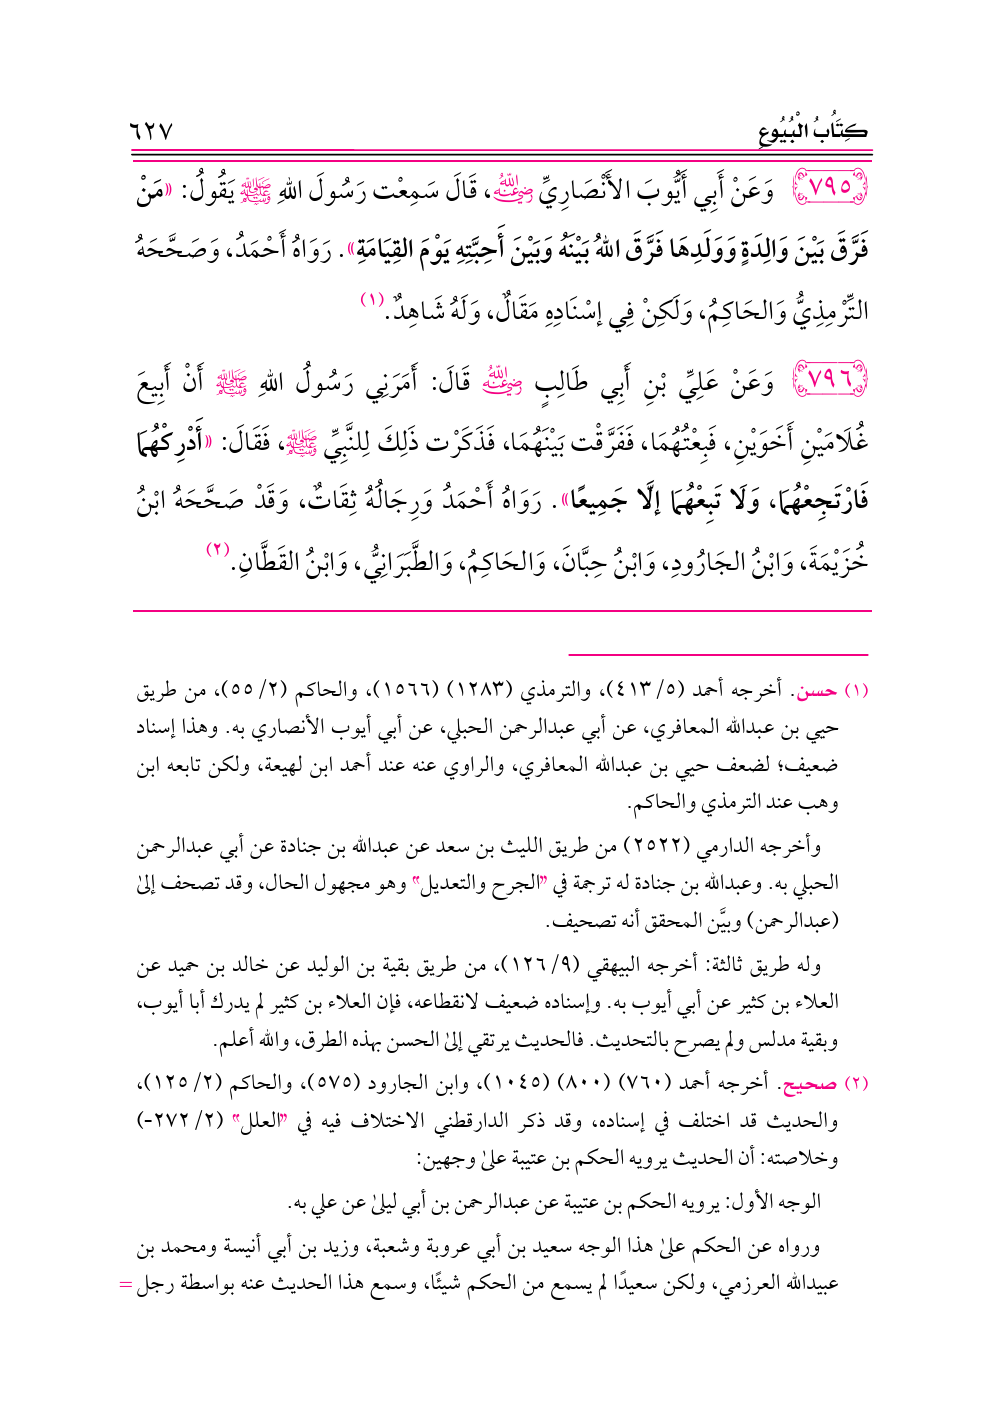 كِتَابُ الْبُيُوعِ ٦٢٧
٧٩٥ وَعَنْ أَبِي أَيُّوبَ الأَنْصَارِيِّ رضي الله عنه، قَالَ سَمِعْت رَسُولَ اللهِ ﷺ يَقُولُ: «مَنْ
فَرَّقَ بَيْنَ وَالِدَةٍ وَوَلَدِهَا فَرَّقَ اللهُ بَيْنَهُ وَبَيْنَ أَحِبَّتِهِ يَوْمَ القِيَامَةِ». رَوَاهُ أَحْمَدُ، وَصَحَّحَهُ
التِّرْمِذِيُّ وَالحَاكِمُ، وَلَكِنْ فِي إسْنَادِهِ مَقَالٌ، وَلَهُ شَاهِدٌ.(١)
٧٩٦ وَعَنْ عَلِيِّ بْنِ أَبِي طَالِبٍ رضي الله عنه قَالَ: أَمَرَنِي رَسُولُ اللهِ ﷺ أَنْ أَبِيعَ
غُلَامَيْنِ أَخَوَيْنِ، فَبِعْتُهُمَا، فَفَرَّقْت بَيْنَهُمَا، فَذَكَرْت ذَلِكَ لِلنَّبِيِّ ﷺ، فَقَالَ: «أَدْرِكْهُمَا
فَارْتَجِعْهُمَا، وَلَا تَبِعْهُمَا إلَّا جَمِيعًا». رَوَاهُ أَحْمَدُ وَرِجَالُهُ ثِقَاتٌ، وَقَدْ صَحَّحَهُ ابْنُ
خُزَيْمَةَ، وَابْنُ الجَارُودِ، وَابْنُ حِبَّانَ، وَالحَاكِمُ، وَالطَّبَرَانِيُّ، وَابْنُ القَطَّانِ.(٢)
(١) حسن. أخرجه أحمد (٥/ ٤١٣)، والترمذي (١٢٨٣) (١٥٦٦)، والحاكم (٢/ ٥٥)، من طريق
حيي بن عبدالله المعافري، عن أبي عبدالرحمن الحبلي، عن أبي أيوب الأنصاري به. وهذا إسناد
ضعيف؛ لضعف حيي بن عبدالله المعافري، والراوي عنه عند أحمد ابن لهيعة، ولكن تابعه ابن
وهب عند الترمذي والحاكم.
وأخرجه الدارمي (٢٥٢٢) من طريق الليث بن سعد عن عبدالله بن جنادة عن أبي عبدالرحمن
الحبلي به. وعبدالله بن جنادة له ترجمة في "الجرح والتعديل" وهو مجهول الحال، وقد تصحف إلىٰ
(عبدالرحمن) وبيَّن المحقق أنه تصحيف.
وله طريق ثالثة: أخرجه البيهقي (٩/ ١٢٦)، من طريق بقية بن الوليد عن خالد بن حميد عن
العلاء بن كثير عن أبي أيوب به. وإسناده ضعيف لانقطاعه، فإن العلاء بن كثير لم يدرك أبا أيوب،
وبقية مدلس ولم يصرح بالتحديث. فالحديث يرتقي إلىٰ الحسن بهذه الطرق، والله أعلم.
(٢) صحيح. أخرجه أحمد (٧٦٠) (٨٠٠) (١٠٤٥)، وابن الجارود (٥٧٥)، والحاكم (٢/ ١٢٥)،
والحديث قد اختلف في إسناده، وقد ذكر الدارقطني الاختلاف فيه في "العلل" (٢/ ٢٧٢-)
وخلاصته: أن الحديث يرويه الحكم بن عتيبة علىٰ وجهين:
الوجه الأول: يرويه الحكم بن عتيبة عن عبدالرحمن بن أبي ليلىٰ عن علي به.
ورواه عن الحكم علىٰ هذا الوجه سعيد بن أبي عروبة وشعبة، وزيد بن أبي أنيسة ومحمد بن
عبيدالله العرزمي، ولكن سعيدًا لم يسمع من الحكم شيئًا، وسمع هذا الحديث عنه بواسطة رجل =